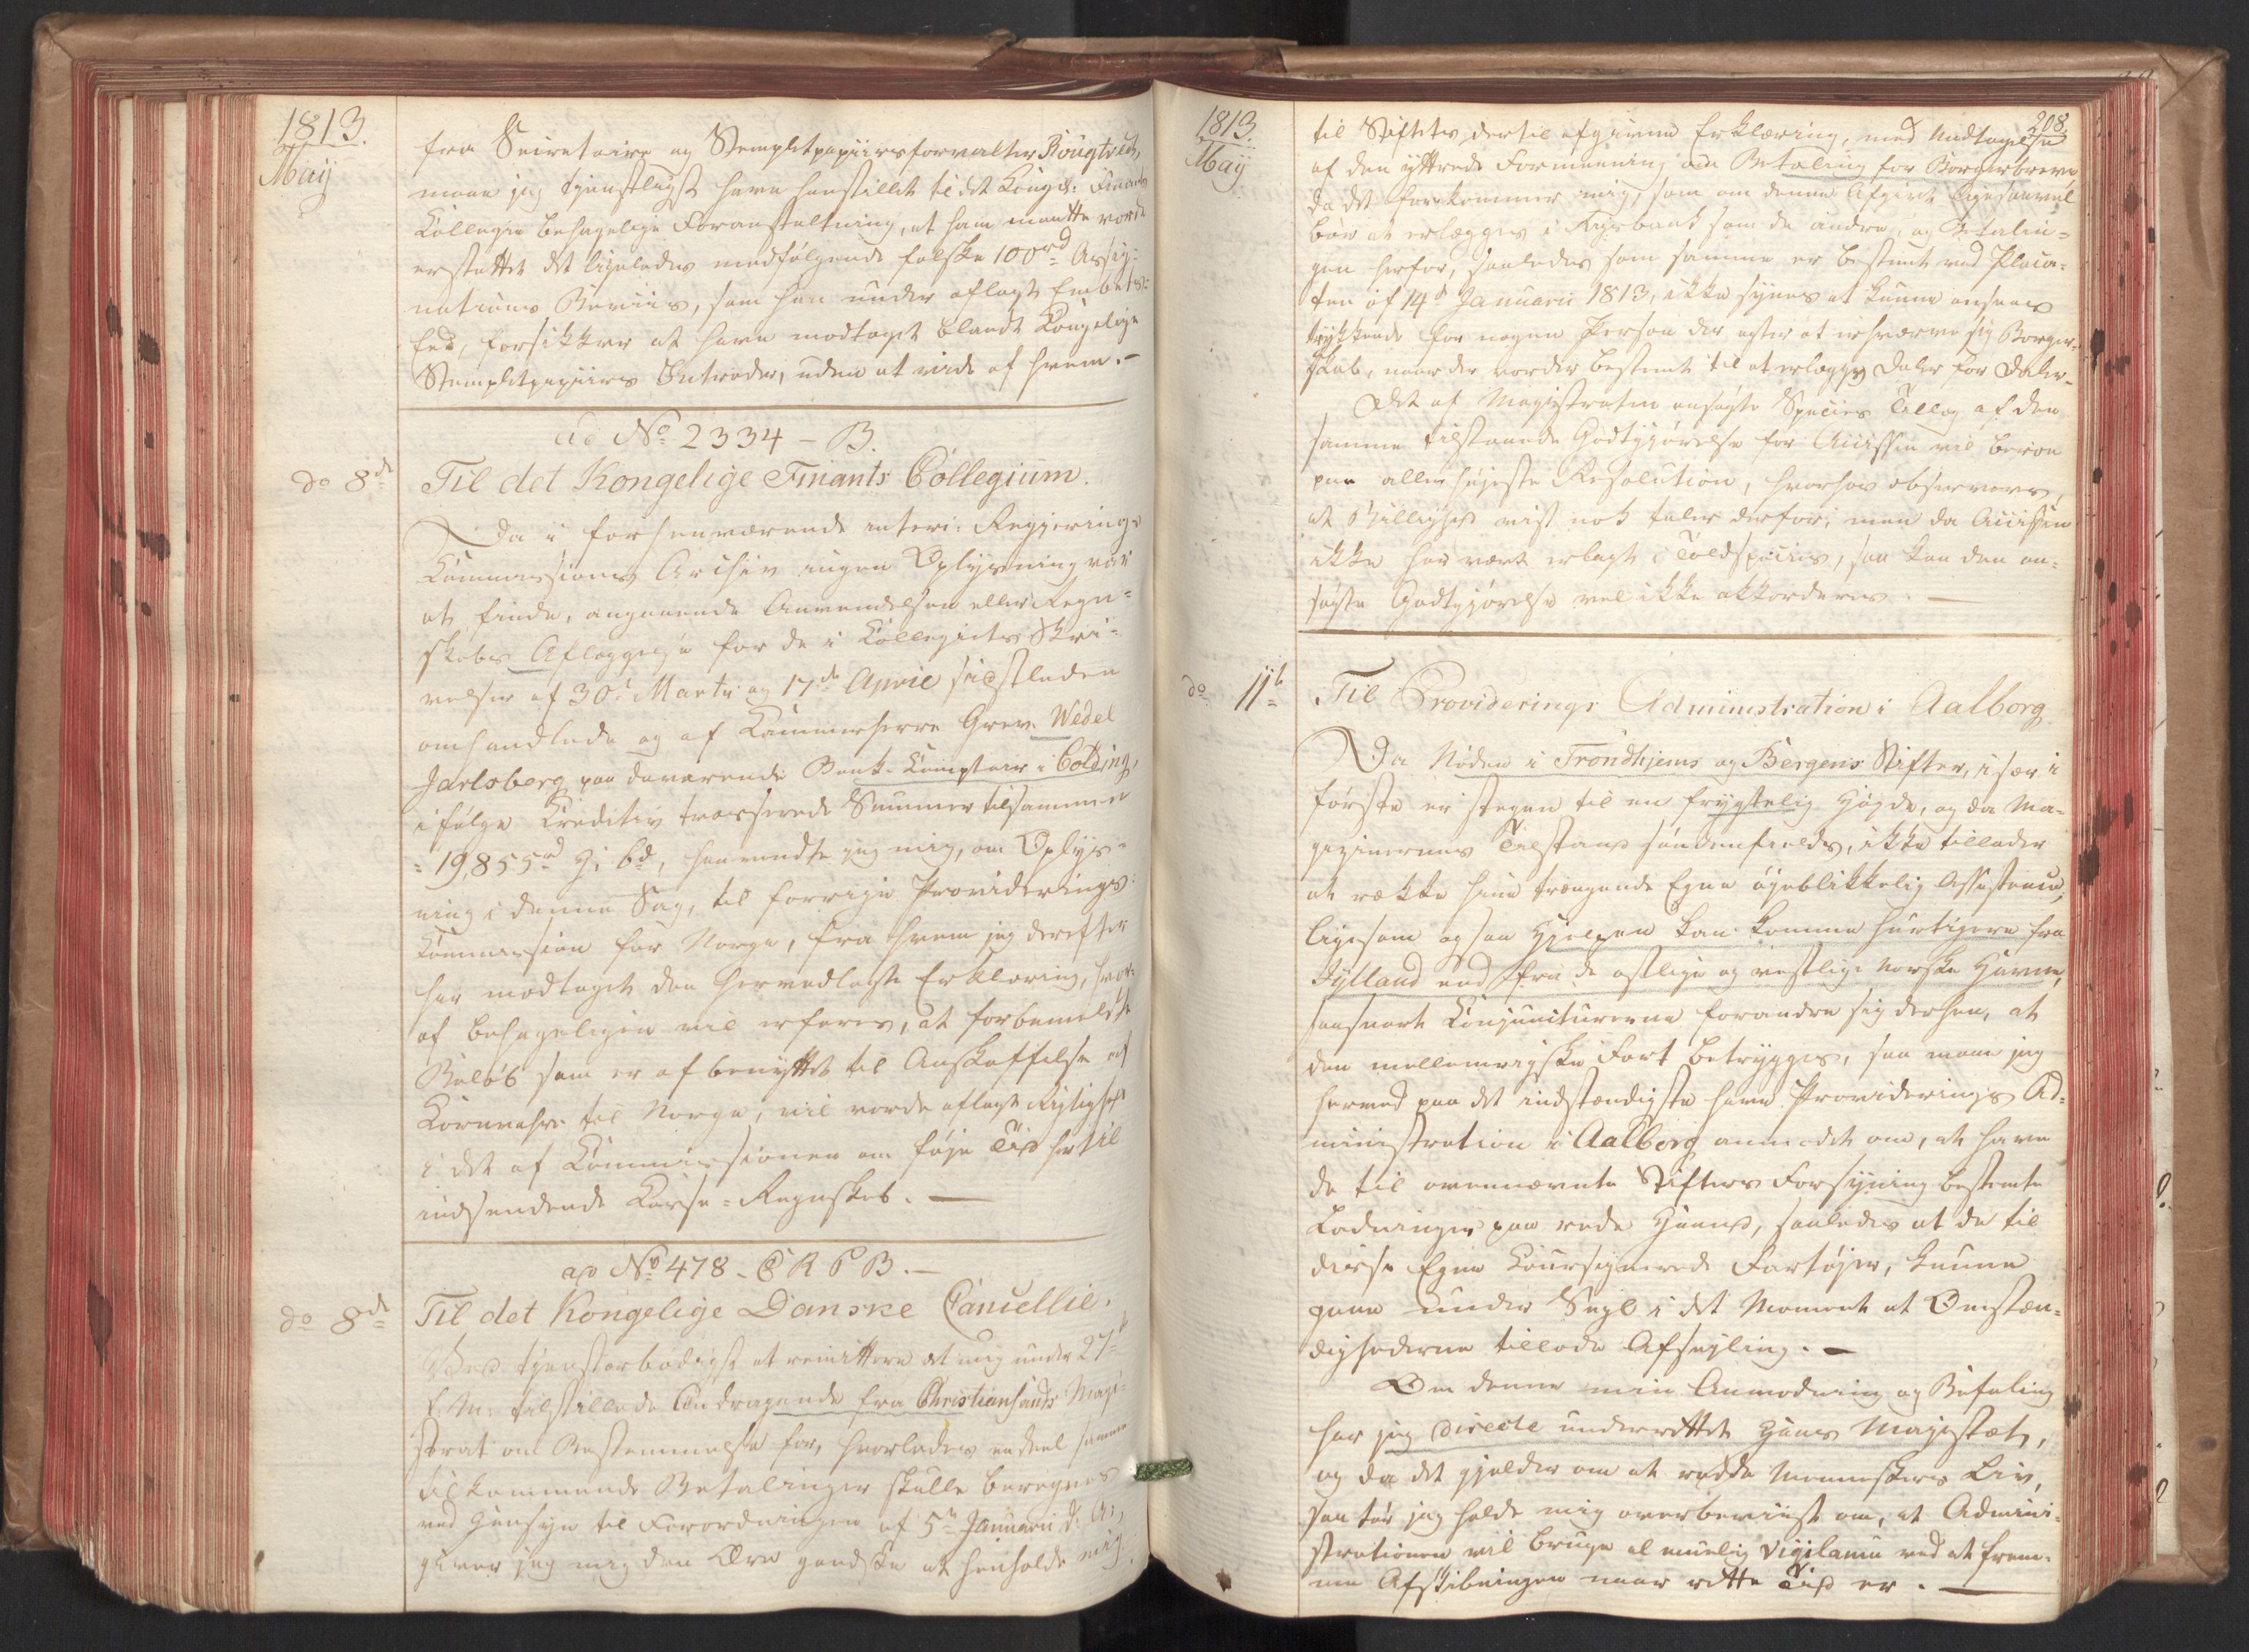 1813.
Maÿ
fra Secretaire og Stempletpapiirsforvalter Rougtvedt,
maae jeg tjenstligst have henstillet til det Kongel: Finants
Collegie behagelige Foranstaltning, at ham maatte vorde
erstattet det ligeledes medfølgende falske 100 rd Assig=
nations Beviis, som han under aflagt Embeds=
Eed, forsikkrer at have modtaget blandt Kongelige
Stempletpapiirs Intrader, uden at vide af hvem. –
ad No 2334 – B.
do 8de
Til det Kongelige Finants Collegium.
Da i forhenværende interi: Regjerings
Commissions Archiv ingen Oplysning var
at finde, angaaende Anvendelsen eller Regn=
skabs Aflæggelse for de i Collegiets Skri=
velser af 30te Marts og 17de April sidstleden
omhandlede og af Kammerherre Grev Wedel
Jarlsberg paa daværende Bank-Comptoir i Colding,
ifølge Creditiv trasserede Summer tilsammen
= 19,855 rd 9 ; 6 d, henvendte jeg mig, om Oplys=
ning i denne Sag, til forrige Providerings=
Commission for Norge, fra hvem jeg derefter
har modtaget den herved lagte Erklæring, hvor=
af behageligen vil erfares, at forbemeldte
Beløb som er af benyttet til Anskaffelse af
Kornvahre til Norge, vil vorde aflagt Rigtighed
i det af Commissionen om føje Tid hertil
indsendende Casse=Regnskab. —
ad No 478 – C R P B. —
do 8de
Til det Kongelige Danske Cancellie.
Ved tjenstærbødigst at remittere det mig under 27de
f. M. tilstillede Andragende fra Christiansands Magi=
strat om Bestemmelse for, hvorledes endeel samme
tilkommende Betalinger skulle beregnes
med Hensyn til Forordningen af 5te Januarii d: A:,
giver jeg mig den Ære gandske at henholde mig
1813.
Maÿ
208.
til Stiftets dertil afgivne Erklæring, med Undtagelse
af den yttrede Formeening om Betaling for Borgerbreve,
da det forekommer mig, som om denne Afgivt ligesaavel
bør at erlægges i Rigsbank som de andre, og Betalin=
gen herfor, saaledes som samme er bestemt ved Placa=
ten af 14de Januarii 1813, ikke synes at kunne ansees
trykkende for nogen Person der agter at erhværve sig Borger=
skab, naar der vorder bestemt til at erlægge Daler for Daler.
Det af Magistraten ansøgte Species Tillæg af den
samme tilstaaede Godtgjørelse for Accissen vil beroe
paa allerhøjeste Resolution, hvorhos observeres,
at Billighed vist nok taler derfor; men da Accissen
ikke har vært erlagt i Toldspecies, saa kan den an=
søgte Godtgjørelse vel ikke akkorderes. —
do 11te
Til Providerings Administration i Aalborg
Da Nøden i Trondhjems og Bergens Stifter, især i
første er stegen til en frygtelig Højde, og da Ma=
gazinernes Tilstand søndenfields, ikke tillader
at række hine trængende Egne øjeblikkelig Assistence,
ligesom og saa Hjelpen kan komme hurtigere fra
Jylland end fra de østlige og vestlige norske Havne,
saasnart Conjuncturerne forandre sig derhen, at
den mellemrigske Fart betrygges, saa maae jeg
herved paa det indstændigste have Providerings Ad=
ministration i Aalborg anmodet om, at have
de til ovennævnte Stifters Forsyning bestemte
Ladninger paa rede Haand, saaledes at de til
disse Egne Consignerede Fartøjer, kunne
gaae under Sejl i det Moment at Omstæn=
dighederne tillade Afsejling. —
Om denne min Anmodning og Befaling
har jeg directe underrettet Hans Majestæt,
og da det gjelder om at redde Menneskers Liv,
saa tør jeg holde mig overbeviist om, at Admini=
strationen vil bruge al muelig Vigilance ved at frem=
me Afskibningen naar rette Tid er. —